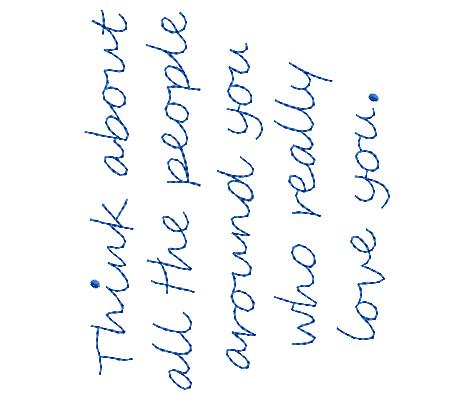 Think about
all the people
around you
who really
love you.